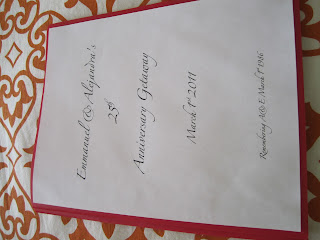 Emmanuel & Alejandra's
25th
Anniversary Getaway
March 1st 2011
Remembering A&E March 1st 1986